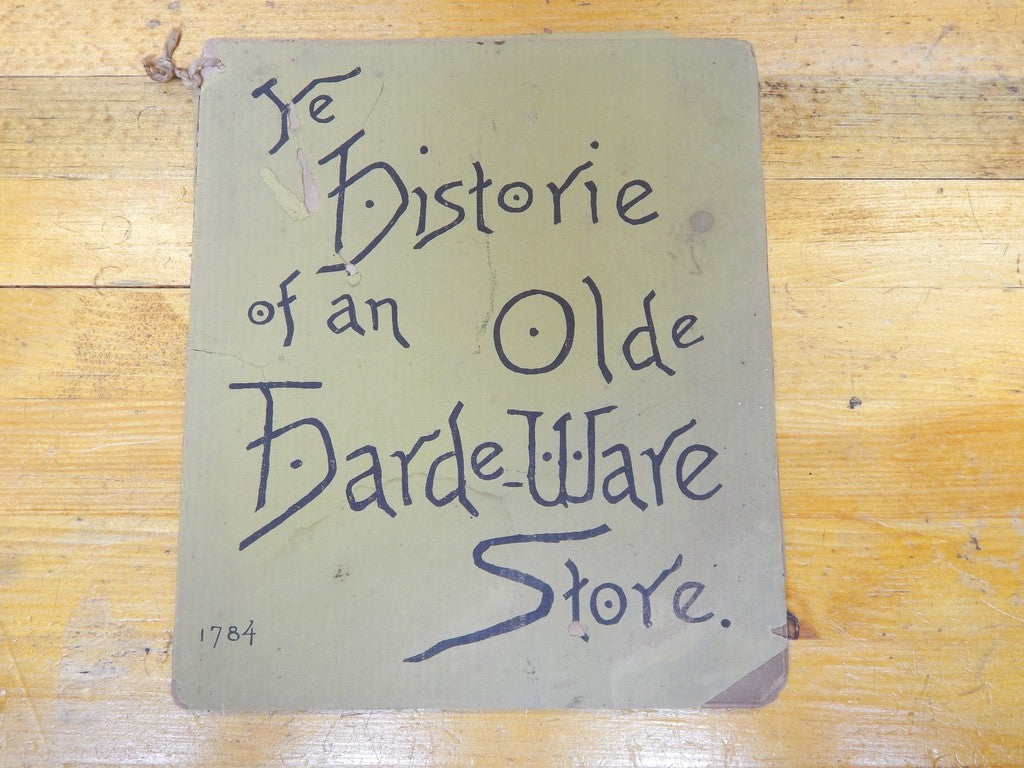 Ye
Historie
of an Olde
Harde-Ware
Store.
1784